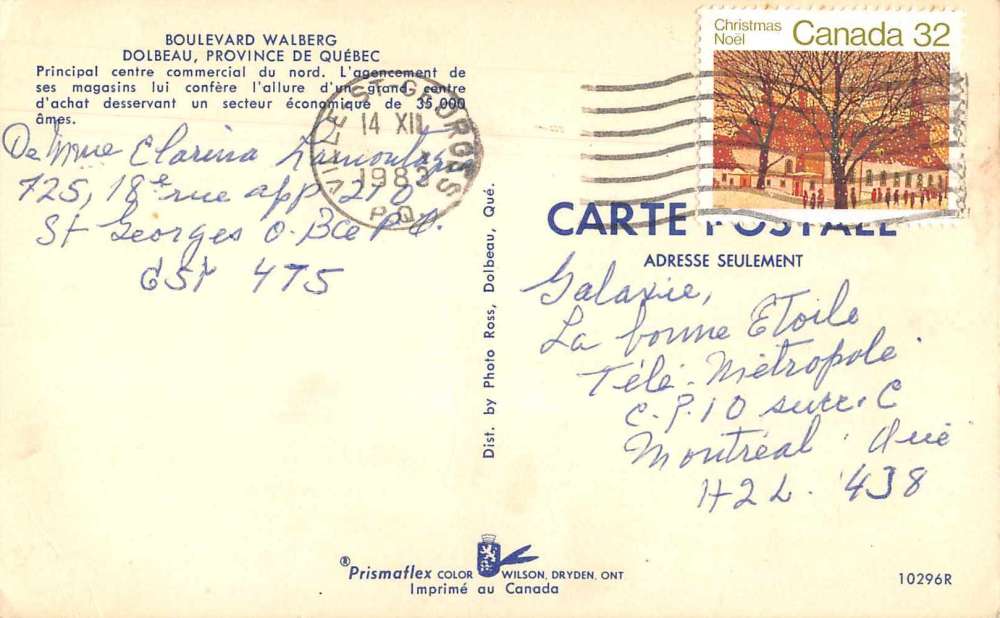 BOULEVARD WALBERG
DOLBEAU, PROVINCE DE QUÉBEC
Principal centre commercial du nord. L'agencement de
ses magasins lui confère l'allure d'un grand centre
d'achat desservant un secteur économique de 35,000
âmes.
De Mme Clarina Lamontagne
725, 18e rue app 212
St Georges O. Bce P.Q.
G5Y 4T5
VILLE ST-GEORGES
14 XII
1983
P.Q.
Christmas
Noël
Canada 32
CARTE POSTALE
ADRESSE SEULEMENT
Galaxie,
La bonne Etoile
Télé-Métropole
C.P.10 succ. C
Montréal Qué
H2L. 4J8
Dist. by Photo Ross, Dolbeau, Qué.
®Prismaflex COLOR WILSON, DRYDEN, ONT.
Imprimé au Canada
10296R